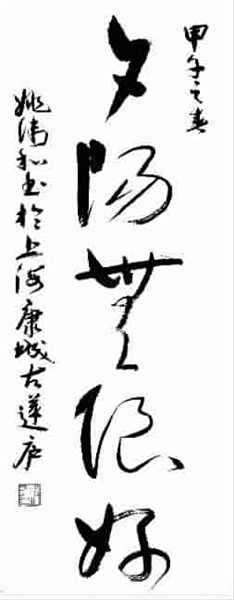 甲午之春
夕陽無限好
姚伟和书於上海康城古莲庐